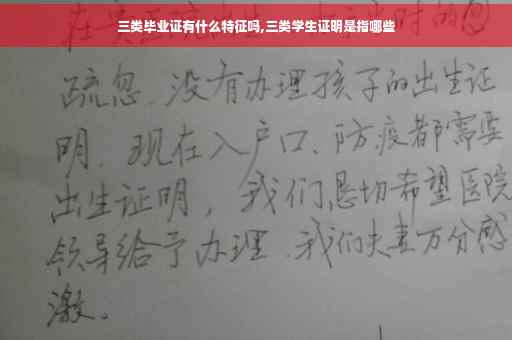 三类毕业证有什么特征吗,三类学生证明是指哪些
疏忽、没有办理孩子的出生证
明、现在入户口、防疫都需要
出生证明，我们恳切希望医院
领导给予办理、我们夫妻万分感
激。